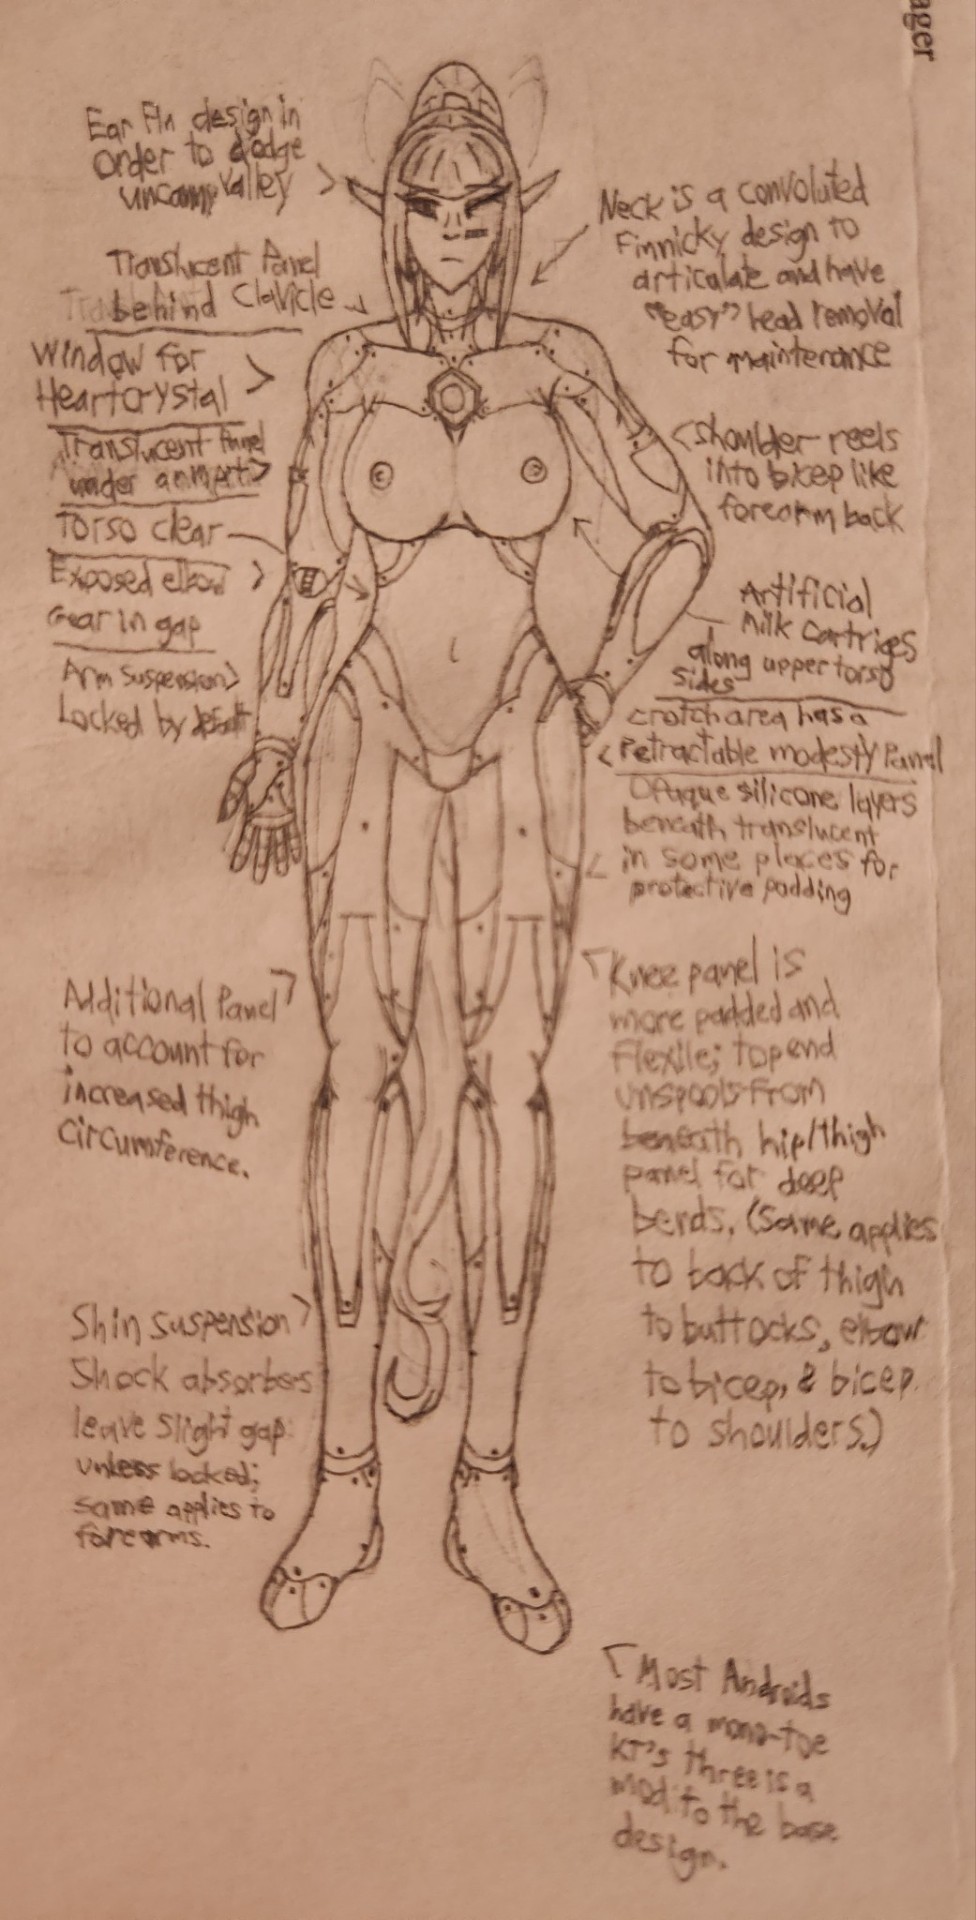 ager
Ear Fin design in
Order to dodge
uncanny valley
Translucent Panel
behind Clavicle
Window for
Heartcrystal
Translucent Panel
under armert
Torso clear
Exposed elbow
Gear in gap
Arm suspension
Locked by default
Additional Panel
to account for
increased thigh
Circumference.
Shin suspension
Shock absorbers
leave slight gap
unless locked;
same applies to
forearms.
Neck is a convoluted
Finnicky design to
articulate and have
"easy" head removal
for maintenance
Shoulder reels
into bicep like
forearm back
Artificial
Milk Cartriges
along upper torso
Sides
crotch area has a
retractable modesty Pannel
Opaque silicone layers
beneath translucent
in some places for
protective padding
Knee panel is
more padded and
Flexile; top end
unspools from
beneath hip/thigh
panel for deep
bends. (Same applies
to back of thigh
to buttocks, elbow
to bicep, & bicep
to shoulders.)
Most Androids
have a mono-toe
KT's three is a
mod to the base
design.